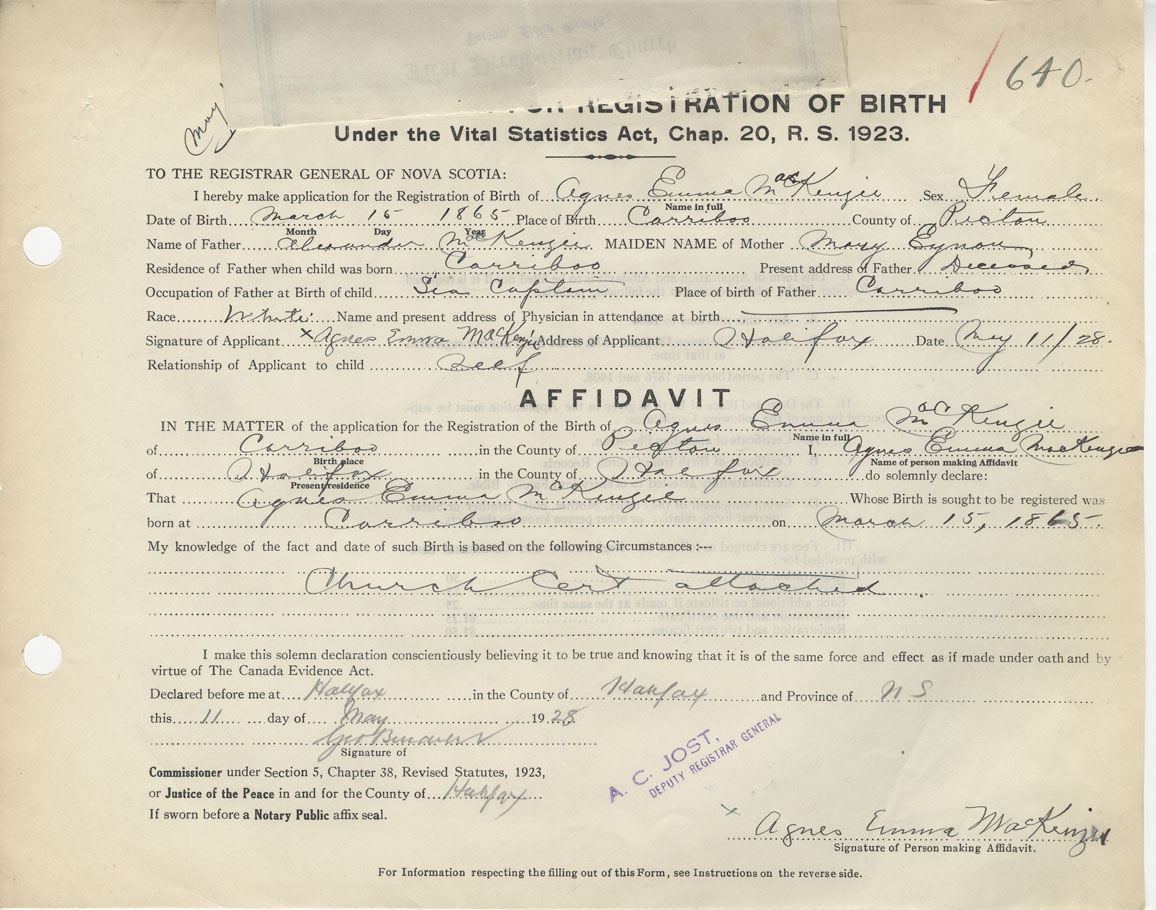 640.
FOR REGISTRATION OF BIRTH
May
Under the Vital Statistics Act, Chap. 20, R. S. 1923.
TO THE REGISTRAR GENERAL OF NOVA SCOTIA:
I hereby make application for the Registration of Birth of Agnes Emma MacKenzie Sex Female
Name in full
Date of Birth March 15 1865 Place of Birth Carriboo County of Pictou
Month Day Year
Name of Father Alexander McKenzie MAIDEN NAME of Mother Mary
Residence of Father when child was born Carriboo Present address of Father Deceased
Occupation of Father at Birth of child Sea Captain Place of birth of Father Carriboo
Race White Name and present address of Physician in attendance at birth
Signature of Applicant x Agnes Emma MacKenzie Address of Applicant Halifax Date May 11/28.
Relationship of Applicant to child Self
AFFIDAVIT
IN THE MATTER of the application for the Registration of the Birth of Agnes Emma MacKenzie
Name in full
of Carriboo in the County of Pictou I, Agnes Emma MacKenzie
Birth place Name of person making Affidavit
of Halifax in the County of Halifax do solemnly declare:
Present residence
That Agnes Emma McKenzie Whose Birth is sought to be registered was
born at Carriboo on March 15, 1865.
My knowledge of the fact and date of such Birth is based on the following Circumstances :---
Church Cert attached
I make this solemn declaration conscientiously believing it to be true and knowing that it is of the same force and effect as if made under oath and by
virtue of The Canada Evidence Act.
Declared before me at Halifax in the County of Halifax and Province of N S
this 11 day of May 1928
Geo
Signature of
Commissioner under Section 5, Chapter 38, Revised Statutes, 1923,
or Justice of the Peace in and for the County of Halifax
If sworn before a Notary Public affix seal.
A. C. JOST,
DEPUTY REGISTRAR GENERAL
x Agnes Emma MacKenzie
Signature of Person making Affidavit.
For Information respecting the filling out of this Form, see Instructions on the reverse side.